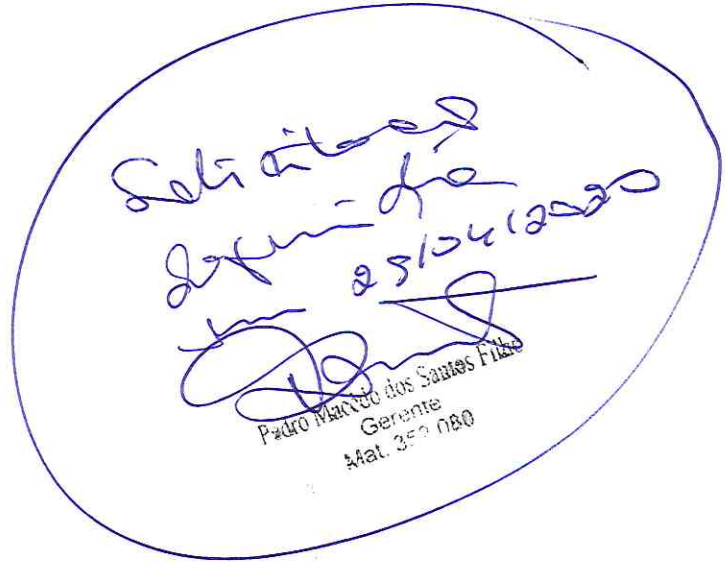 Solicitação
em 29/04/2020
Pedro Macedo dos Santos Filho
Gerente
Mat. 352.080